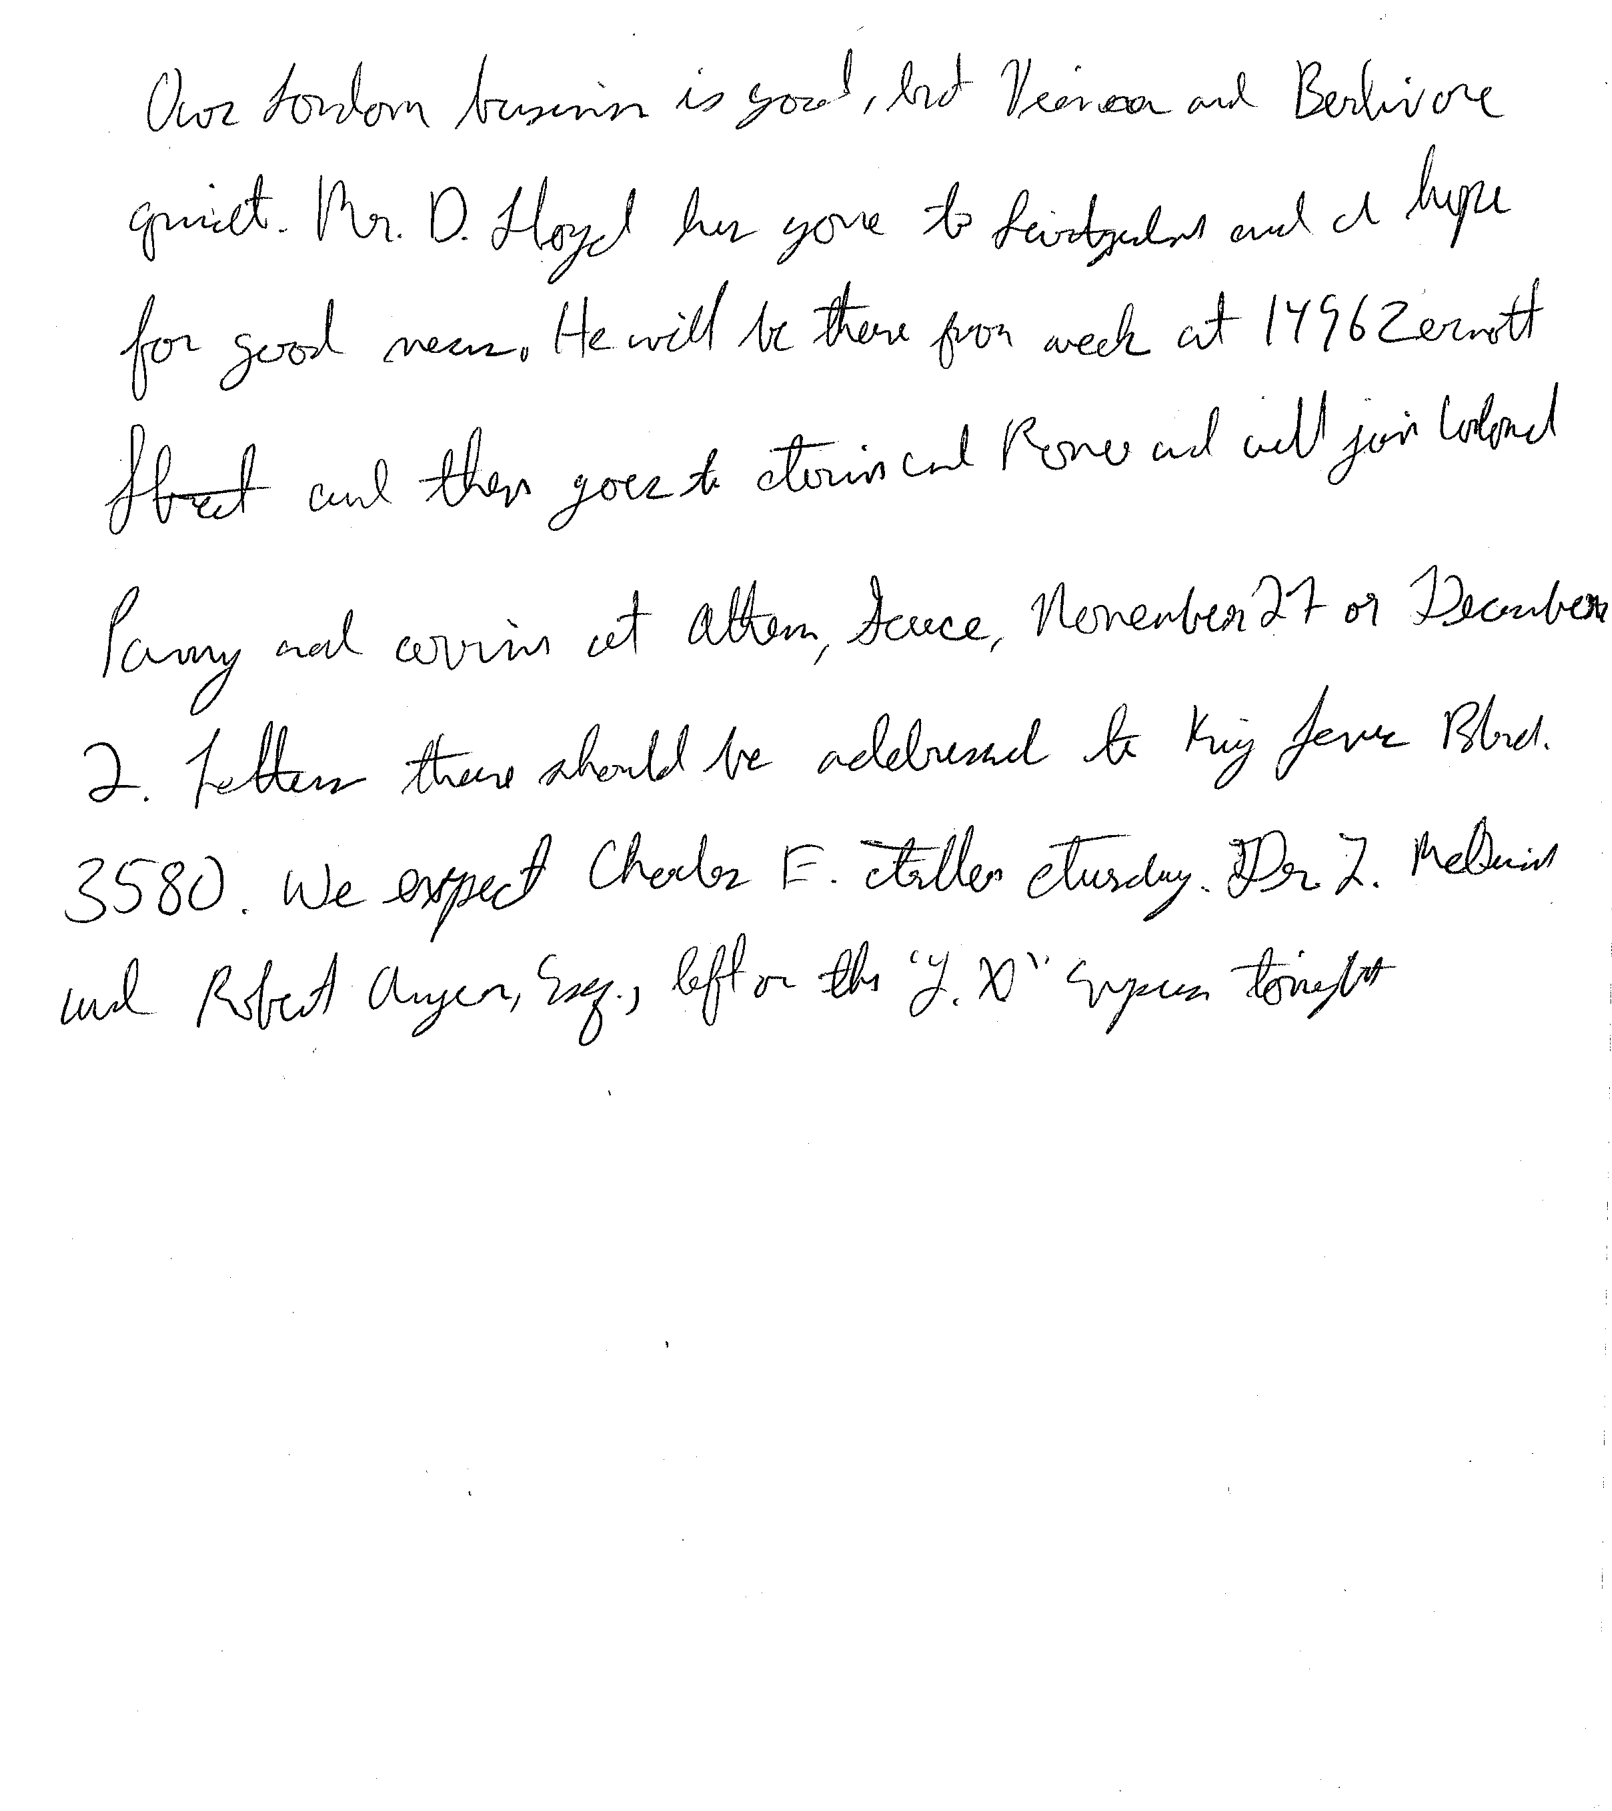 Our London business is good, but Vienna and Berlin are
quiet. Mr. D. Lloyd has gone to and I hope
for good news. He will be there for week at 1496 Zermott
Street and then goes to Turin and Rome and will join Colonel
Parry and arrive at Athens, Greece, November 27 or December
2. Letters there should be addressed to King James Blvd.
3580. We expect Charles E. Fuller Tuesday. Dr. L. McQuaid
and Robert Unger, Esq., left on the "Y.X" Express tonight